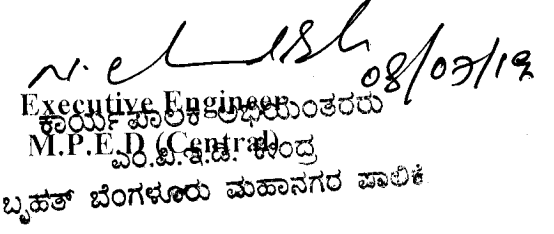 08/07/19
Executive Engineer
ಕಾರ್ಯಪಾಲಕ ಅಭಿಯಂತರರು
M.P.E.D (Central)
ಎಂ.ಪಿ.ಇ.ಡಿ. ಕೇಂದ್ರ
ಬೃಹತ್ ಬೆಂಗಳೂರು ಮಹಾನಗರ ಪಾಲಿಕೆ